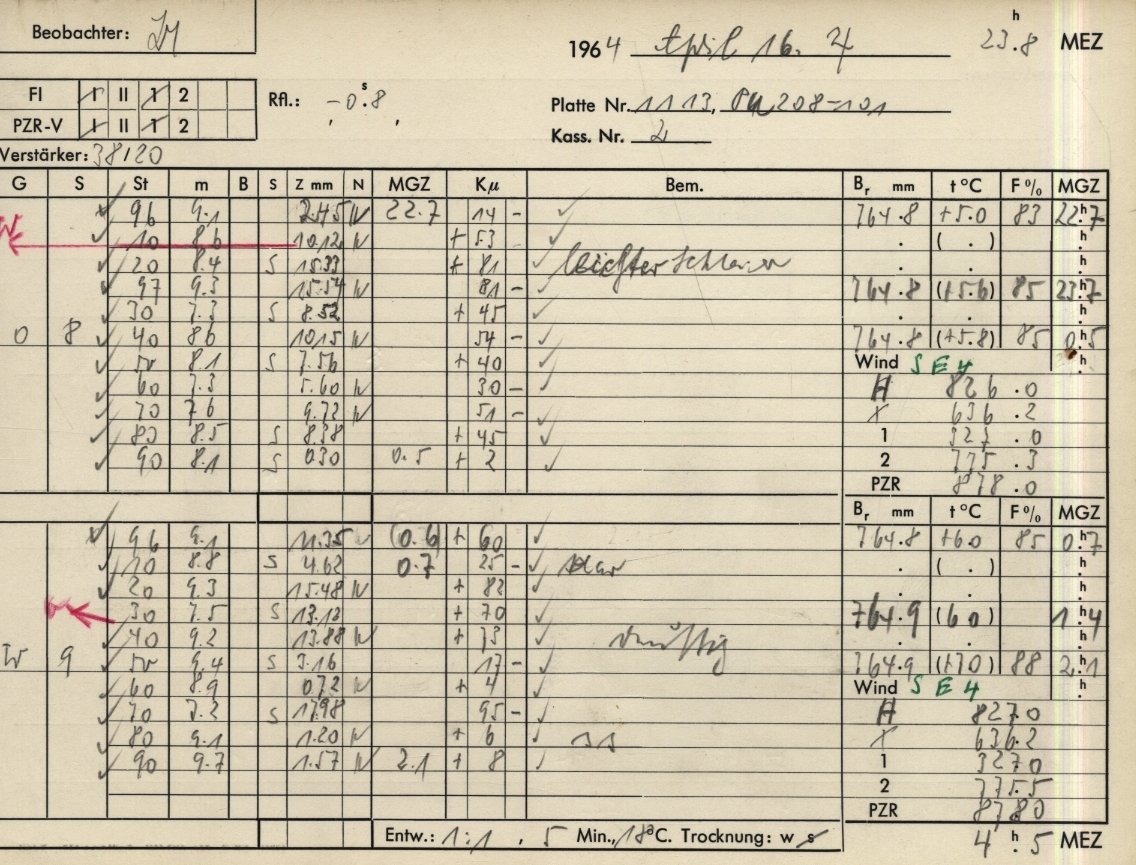 Beobachter:
1964 April 16. 23h.8 MEZ
FI I II 1 2 Rfl.: -0s.8 Platte Nr. 1113, 208-101
PZR-V I II 1 2 Kass. Nr. 2
Verstärker: 38/20
G S St m B S Z mm N MGZ Kµ Bem. Br mm t °C F % MGZ
96 9.1 2.45 N 22.7 14 - 764.8 +5.0 83 22h.7
10 8.6 10.12 N + 53 . ( . ) h.
20 8.4 S 15.33 + 81 leichter Schleier
97 9.3 15.54 N 81 - 764.8 (+5.6) 85 23h.7
30 7.3 S 8.52 + 45
0 8 40 8.6 10.15 N 54 - 764.8 (+5.8) 85 0h.5
50 8.1 S 7.56 + 40 Wind SE4
60 7.3 5.60 N 30 - H 826.0
70 7.6 9.72 N 51 - X 636.2
80 8.5 S 8.38 + 45 1 327.0
90 8.1 S 0.30 0.5 + 2 2 775.3
PZR 878.0
Br mm t °C F % MGZ
96 9.1 11.35 N (0.6) + 60 764.8 +6.0 85 0h.7
10 8.8 S 4.62 0.7 25 - klar . ( . ) h.
20 9.3 15.48 N + 82
30 7.5 S 13.13 + 70 764.9 (6.0) 1h.4
40 9.2 13.88 N + 73 dunstig
W 9 50 9.4 S 3.16 17 - 764.9 (+7.0) 88 2h.1
60 8.9 0.72 N + 4 Wind SE4
70 7.2 S 17.98 95 - H 827.0
80 9.1 1.20 N + 6 X 636.2
90 9.7 1.57 N 2.1 + 8 1 327.0
2 775.5
PZR 878.0
Entw.: 1:1, 5 Min., 18°C. Trocknung: w s 4h.5 MEZ